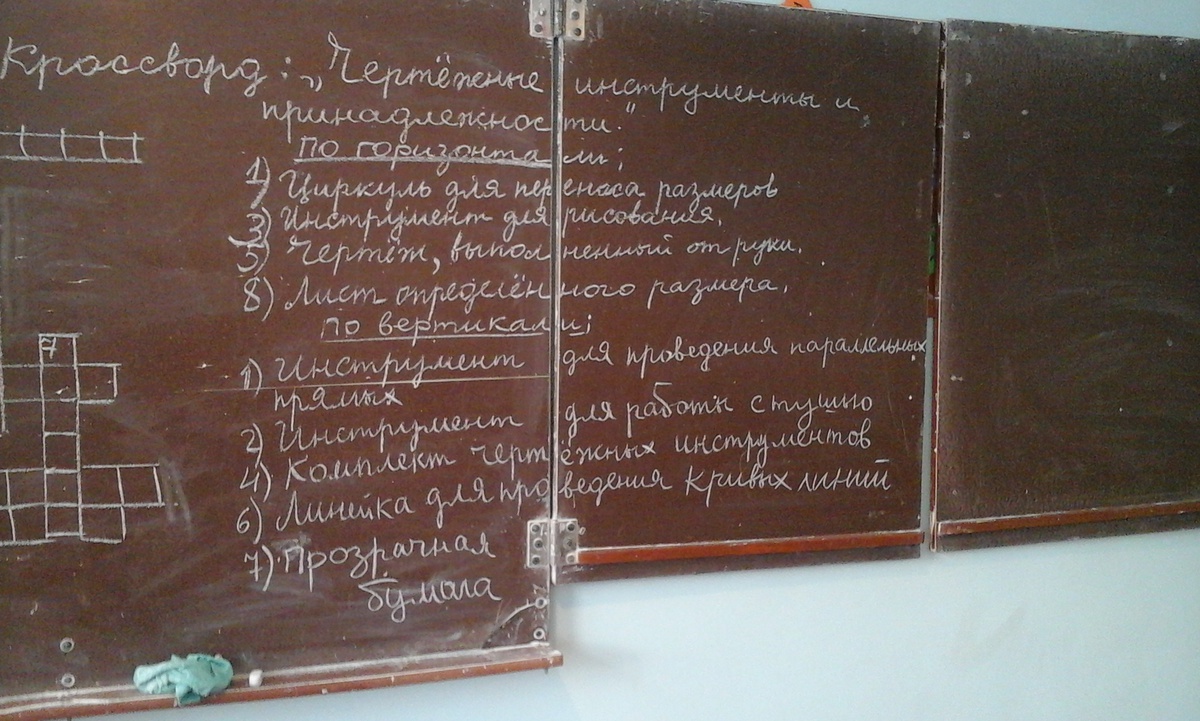 Кроссворд: „Чертёжные инструменты и
принадлежности."
по горизонтали;
1) Циркуль для переноса размеров
3) Инструмент для рисования.
5) Чертёж, выполненный от руки.
8) Лист определённого размера.
по вертикали;
1) Инструмент для проведения параллельных
прямых
2) Инструмент для работы с тушью
4) Комплект чертёжных инструментов
6) Линейка для проведения кривых линий
7) Прозрачная
бумага
7